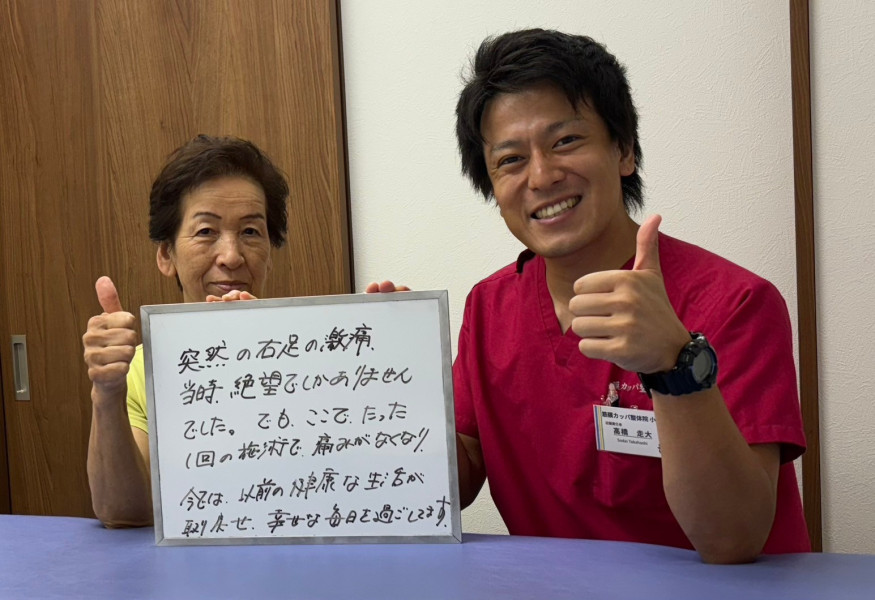 突然の右足の激痛、
当時、絶望でしかありません
でした。でも、ここで、たった
1回の施術で、痛みがなくなり、
今では、以前の健康な生活が
取り戻せ、幸せな毎日を過ごしてます。
カッパ整体
カッパ整体院 小
高橋 走大
Sodai Takahashi